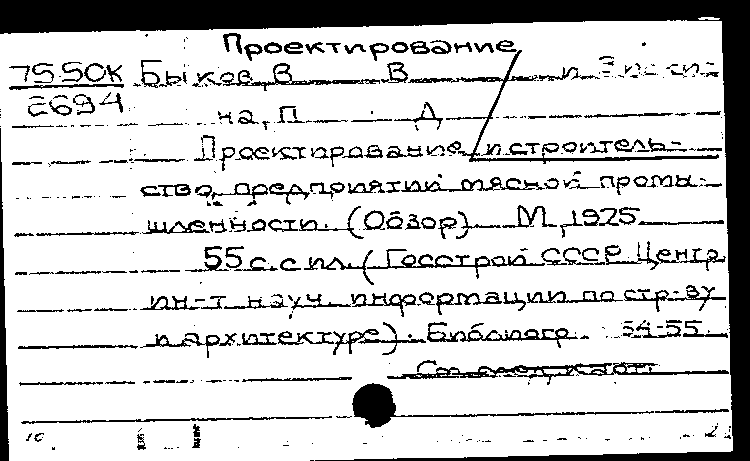 Проектирование
75 50К Быков, В В и
2694 на, П Д
Проектирование и строитель-
ство предприятий мясной промы-
шленности. (Обзор). М, 1975
55 с. с ил. (Госстрой СССР. Центр.
ин-т науч. информации по стр-ву
и архитектуре). Библиогр. 54-55.
См. след. карт
10 2